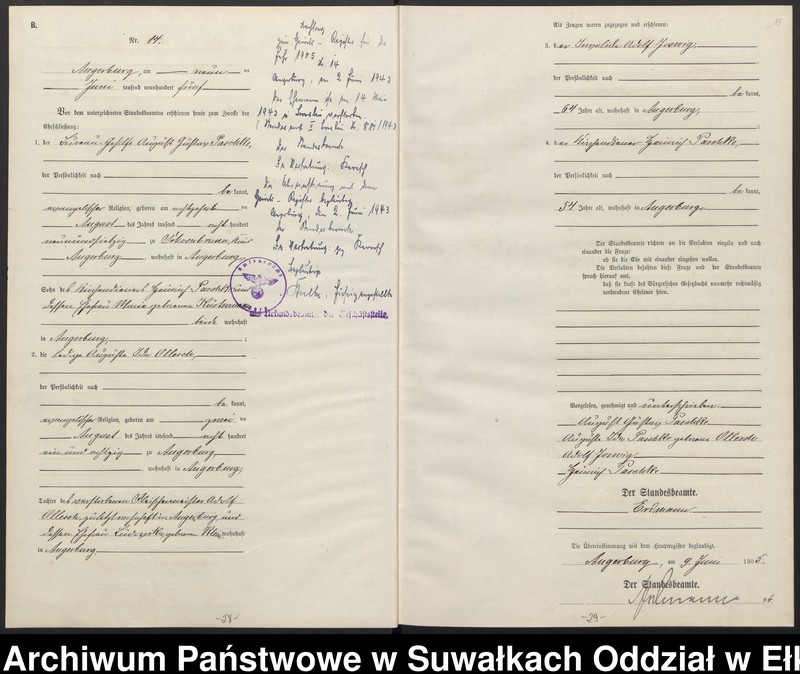 B.
Nr. 14.
Angerburg, am neun ten
Juni tausend neunhundert fünf
Vor dem unterzeichneten Standesbeamten erschienen heute zum Zwecke der
Eheschließung:
1. der August Gustav Paschke,
der Persönlichkeit nach
be kannt,
evangelischer Religion, geboren am achtzehnten
August des Jahres tausend acht hundert
neunundsiebzig zu
Angerburg, wohnhaft in Angerburg
Sohn des Kirchendieners Heinrich Paschke und
dessen Ehefrau Maria geborenen
beide wohnhaft
in Angerburg;
2. die ledige Auguste Ida Ollesch,
der Persönlichkeit nach
be kannt,
evangelischer Religion, geboren am zwei ten
August des Jahres tausend acht hundert
ein und achtzig zu Angerburg,
wohnhaft in Angerburg,
Tochter des verstorbenen Fleischermeister Adolf
Ollesch, zuletzt wohnhaft in Angerburg und
dessen Ehefrau geborenen wohnhaft
in Angerburg.
-28-
zum Heirats-Register für das
Jahr 1905 Nr. 14
Angerburg, am 2. Juni 1943
Der Ehemann ist am 14. Mai
1943 in verstorben.
(Standesamt I Nr. /1943
Der Standesbeamte
In Vertretung:
Die Übereinstimmung mit dem
Heirats-Register beglaubigt
Angerburg, den 2. Juni 1943
Der Standesbeamte
In Vertretung: gez.
Beglaubigt
Justizangestellte
als Urkundsbeamter der Geschäftsstelle.
15
Als Zeugen waren zugezogen und erschienen:
3. der Invalide Adolf Joswig,
der Persönlichkeit nach
be kannt,
64 Jahre alt, wohnhaft in Angerburg,
;
4. der Kirchendiener Heinrich Paschke,
der Persönlichkeit nach
be kannt,
54 Jahre alt, wohnhaft in Angerburg.
Der Standesbeamte richtete an die Verlobten einzeln und nach
einander die Frage:
ob sie die Ehe mit einander eingehen wollen.
Die Verlobten bejahten diese Frage und der Standesbeamte
sprach hierauf aus,
daß sie kraft des Bürgerlichen Gesetzbuchs nunmehr rechtmäßig
verbundene Eheleute seien.
Vorgelesen, genehmigt und unterschrieben
August Gustav Paschke
Auguste Ida Paschke geborene Ollesch
Adolf Joswig,
Heinrich Paschke
Der Standesbeamte.
Erdmann
Die Übereinstimmung mit dem Hauptregister beglaubigt.
Angerburg, am 9. Juni 1905.
Der Standesbeamte.
Erdmann
-29-
Archiwum Państwowe w Suwałkach Oddział w Ełk